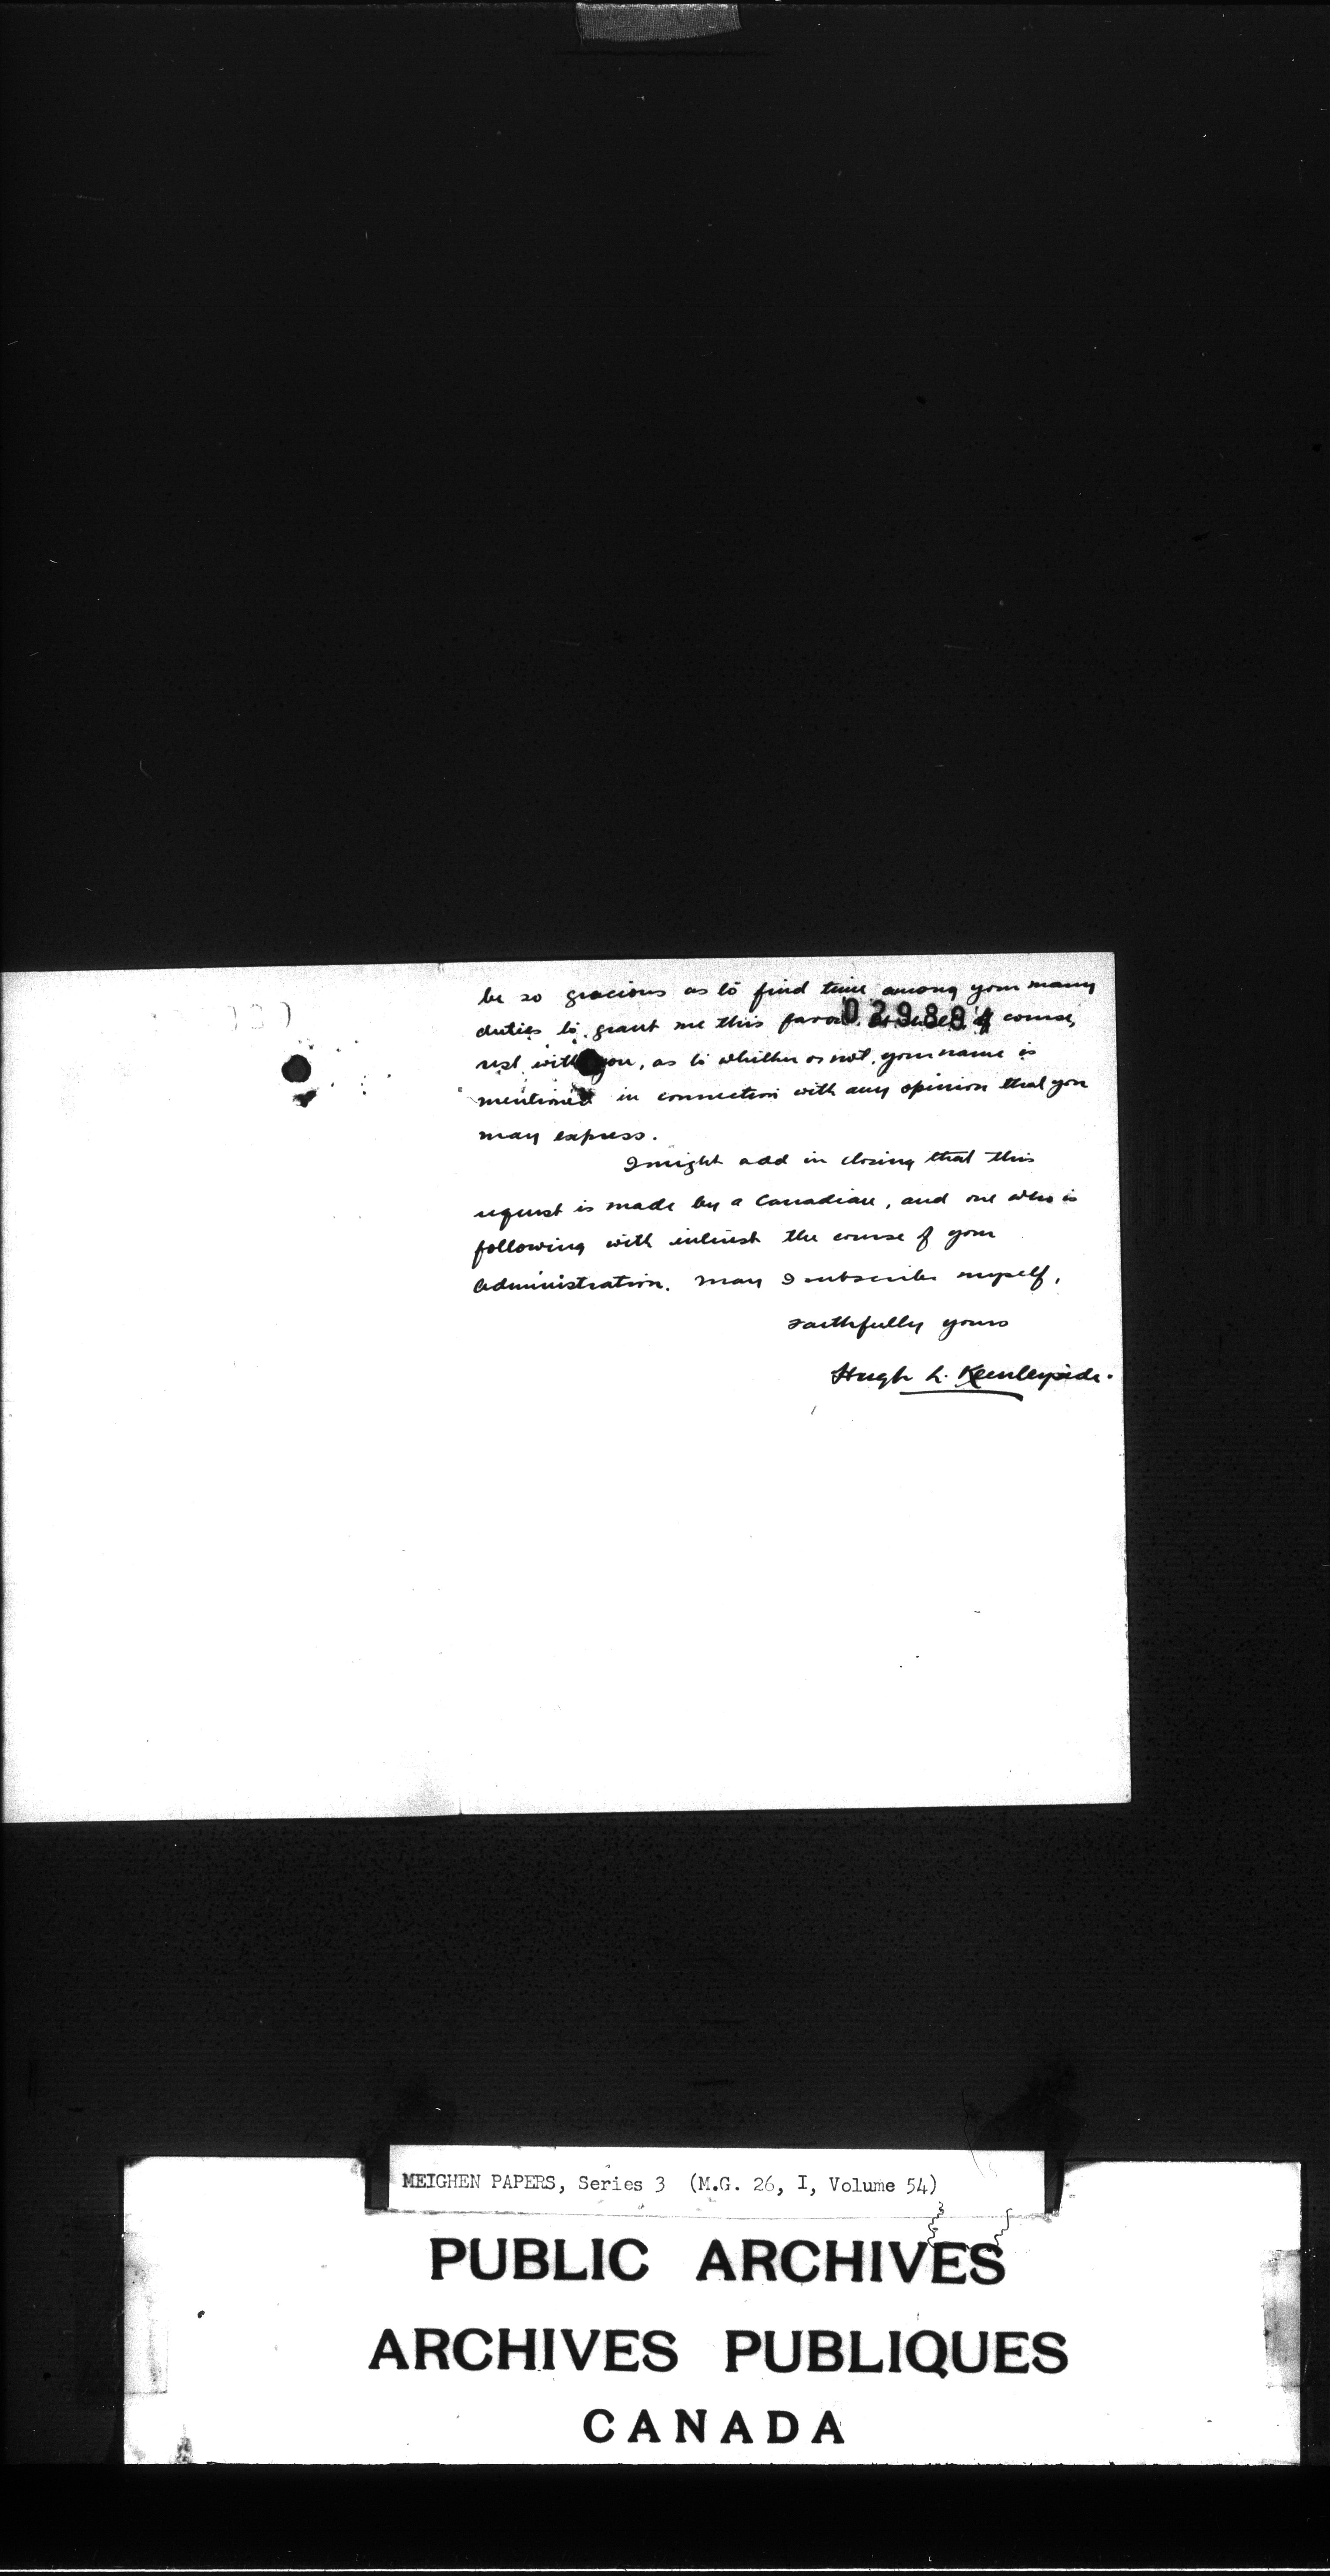 be so gracious as to find time among your many
duties to grant me this favor 029884 of course,
rest with you, as to whether or not, your name is
mentioned in connection with any opinion that you
may express.
I might add in closing that this
request is made by a Canadian, and one who is
following with interest the course of your
administration. May I subscribe myself,
Faithfully yours
Hugh L. Keenleyside.
MEIGHEN PAPERS, Series 3 (M.G. 26, I, Volume 54)
PUBLIC ARCHIVES
ARCHIVES PUBLIQUES
CANADA